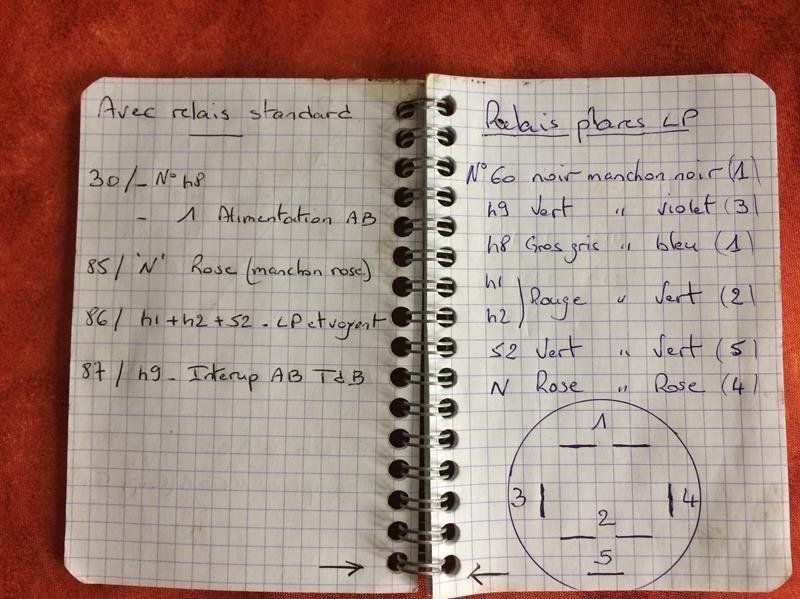 Avec relais standard
30/- N° h8
- 1 Alimentation AB
85/ 'N' Rose (manchon rose)
86/ h1+h2+S2 - LP et voyent
87/ h9 - Interup AB TdB
Relais phares LP
N° 60 noir manchon noir (1)
h9 Vert " violet (3)
h8 Gros gris " bleu (1)
h1
h2 ) Rouge " Vert (2)
S2 Vert " Vert (5)
N Rose " Rose (4)
1
3 4
2
5